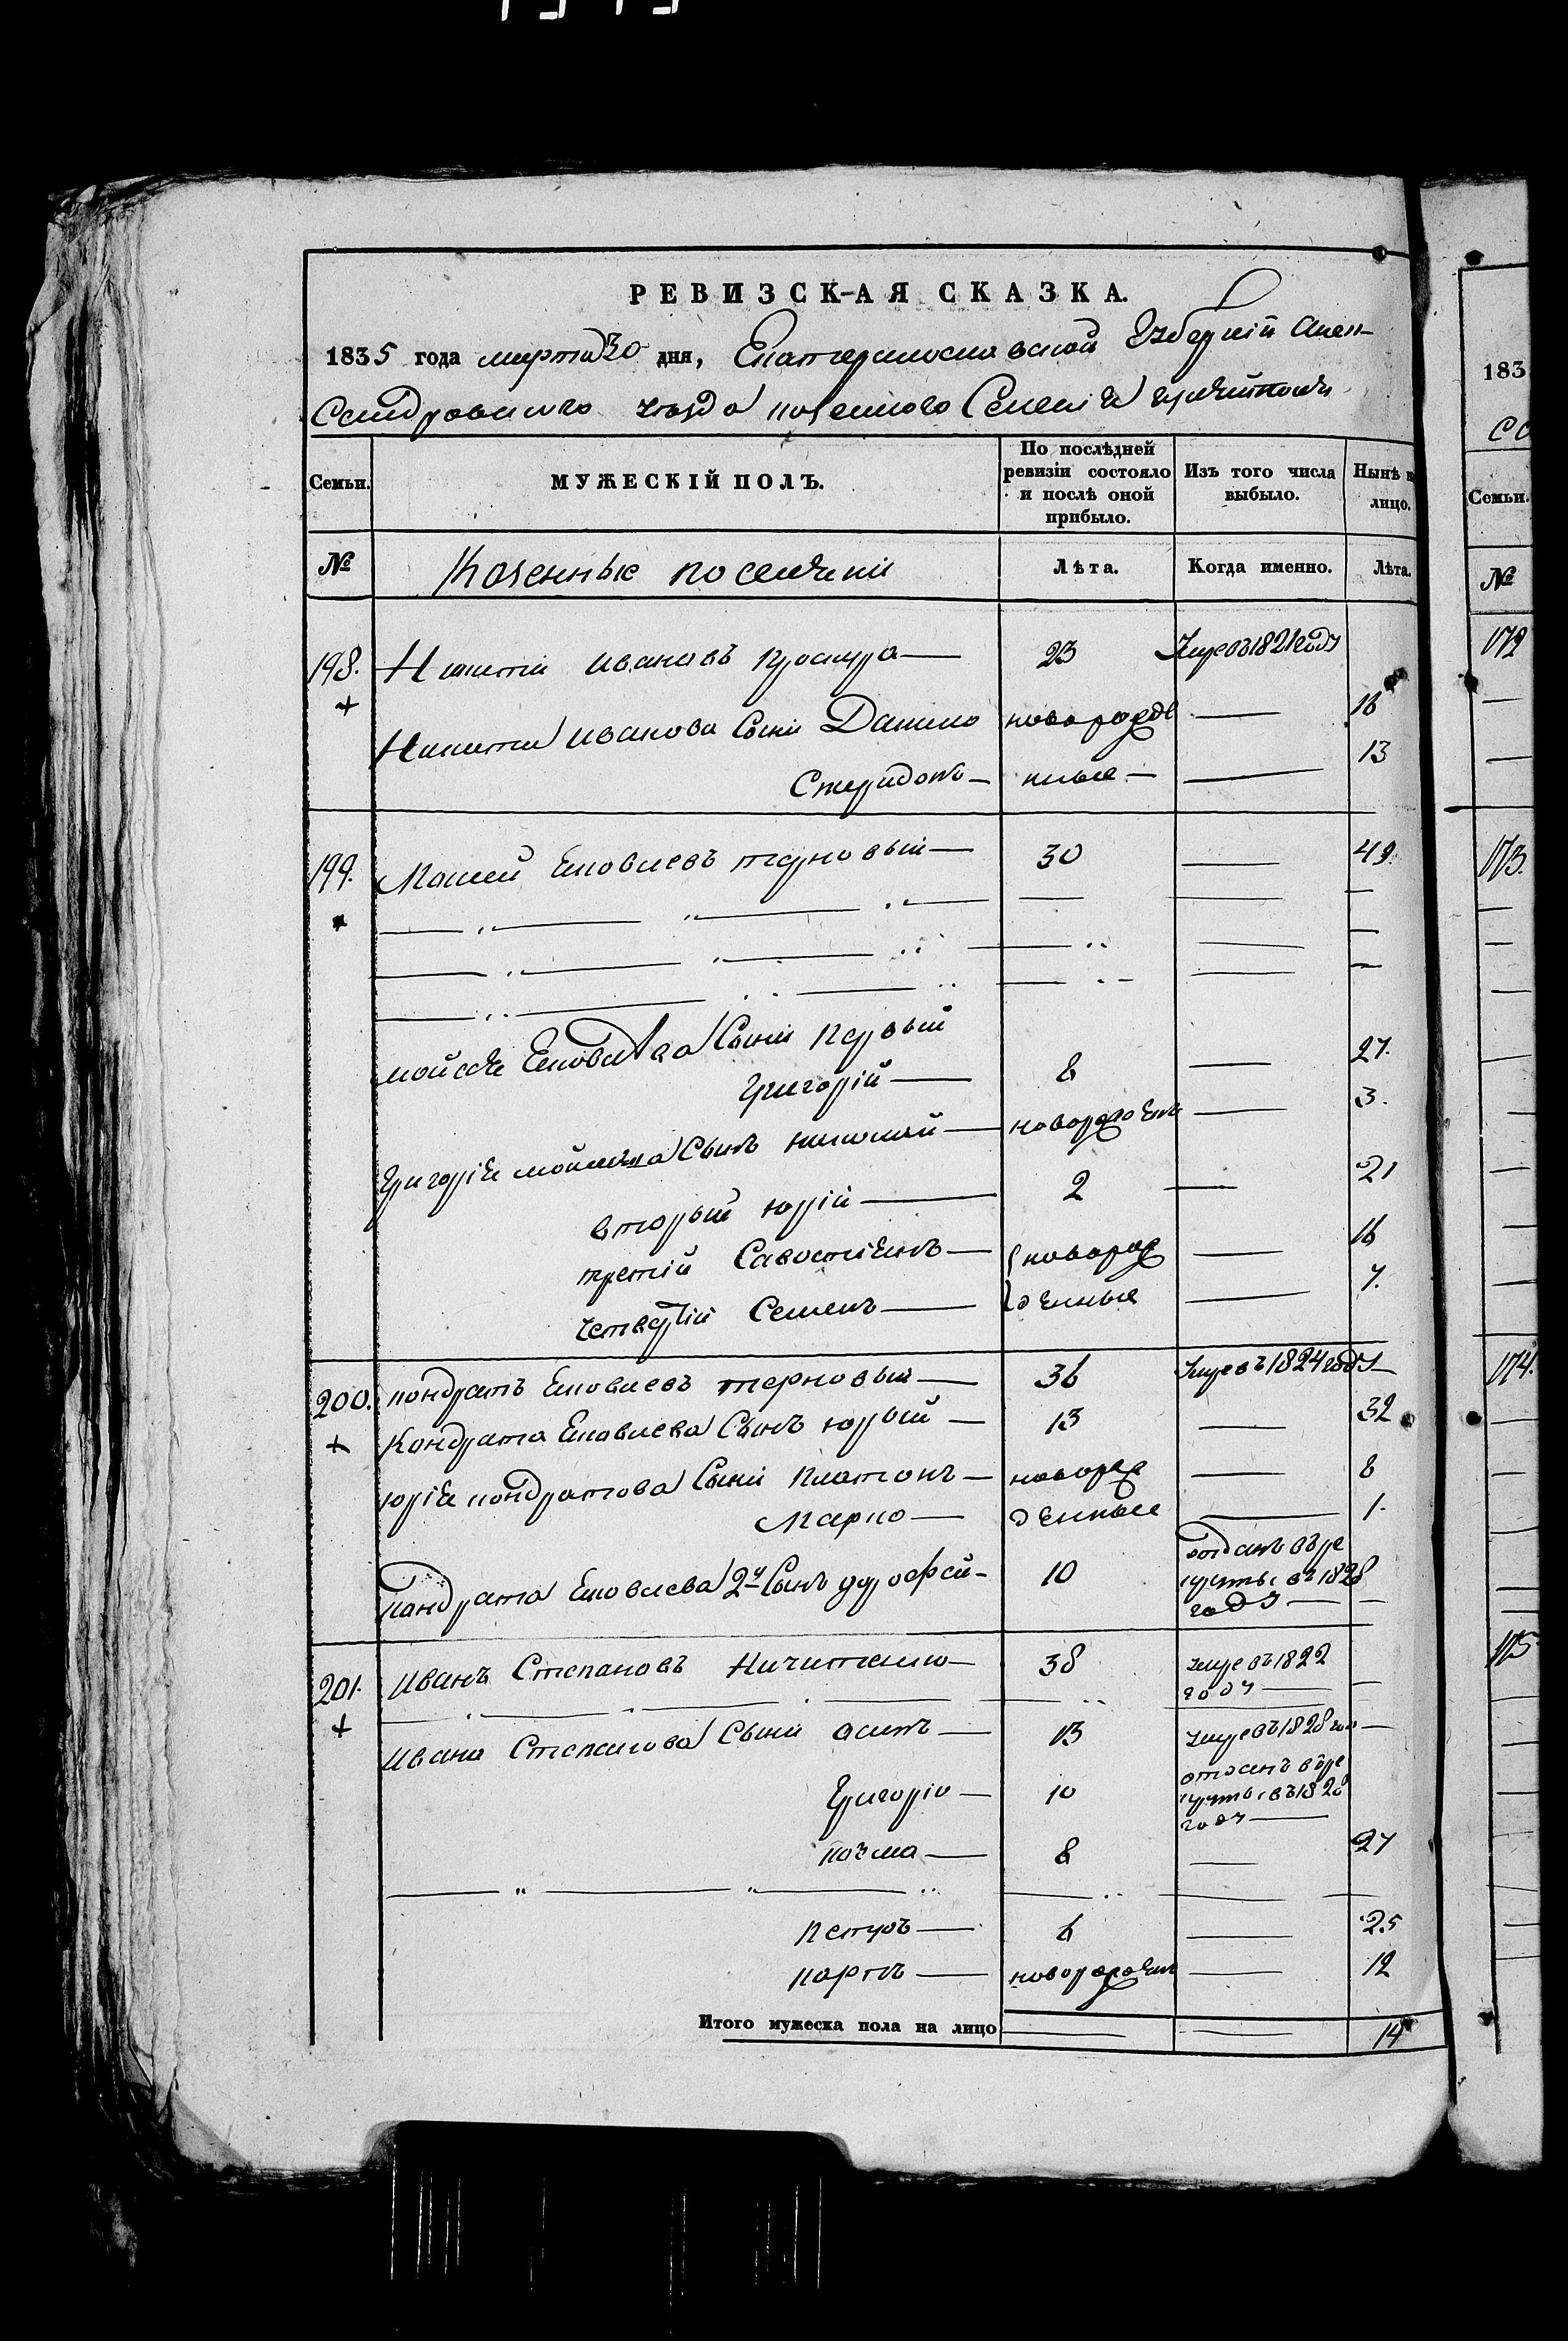 РЕВИЗСК-АЯ СКАЗКА.
1835 года марта 30 дня, Екатеринославской Губерніи Алек-
сандровского уезда казенного Селенія
Семьи. МУЖЕСКІЙ ПОЛЪ. По послѣдней ревизіи состояло и послѣ оной прибыло. Изъ того числа выбыло. Нынѣ н лицо.
№ Казенные поселяни Лѣта. Когда именно. Лѣта.
198. Никита Ивановъ 23 Умре въ 1821 году
Никиты Иванова Сыни Данило новорожде — 16
Спиридонъ — нные — — 13
199. Мойсей Яковлевъ терновый — 30 — 49
Мойсея Яковлева Сыни первый
Григорій — 8 — 27.
Григорія мойсеева Сынъ николай — новорожденъ — 3.
вторый юрій — 2 — 21
третій Савостіянъ — новорож — 16
четвертій Семенъ — денные — 7.
200. кондратъ Яковлевъ терновый — 36 Умре въ 1824 году
Кондрата Яковлева Сынъ юрый — 13 — 32
юрія кондратова Сыни Платонъ — новорож — 8
Марко — денные — 1.
кандрата Яковлева 2й Сынъ дорофей — 10 отданъ въ ре
круты въ 1828
году —
201. Иванъ Степановъ Ничитенко — 38 умре въ 1822
году —
Ивана Степанова Сыни осипъ — 13 умре въ 1828 го —
Григорій — 10 отданъ въ ре
круты въ 1828
году —
козма — 8 — 27
петръ — 6 — 25
карпъ — новорожденъ — 12
Итого мужеска пола на лицо — — 14
183
СС
Семьи.
№
172
173.
174.
175